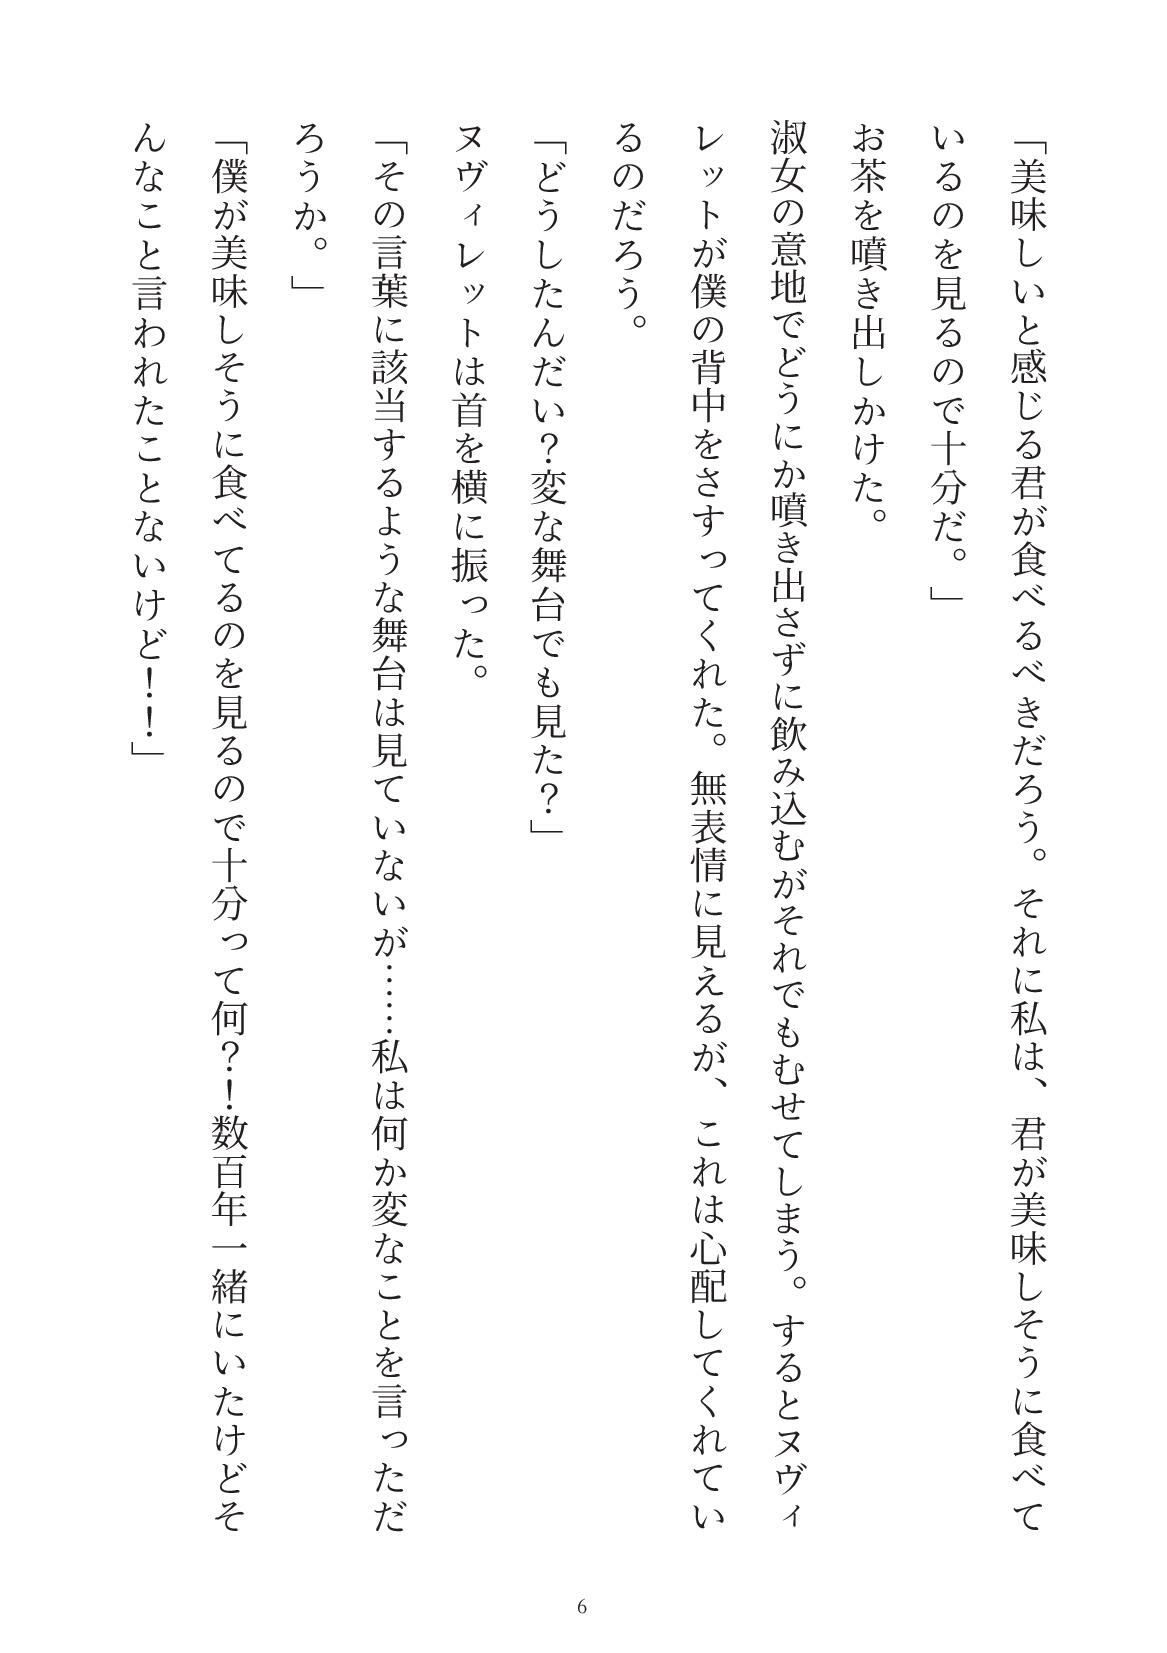 「美味しいと感じる君が食べるべきだろう。それに私は、君が美味しそうに食べて
いるのを見るので十分だ。」
お茶を噴き出しかけた。
淑女の意地でどうにか噴き出さずに飲み込むがそれでもむせてしまう。するとヌヴィ
レットが僕の背中をさすってくれた。無表情に見えるが、これは心配してくれてい
るのだろう。
「どうしたんだい？変な舞台でも見た？」
ヌヴィレットは首を横に振った。
「その言葉に該当するような舞台は見ていないが……私は何か変なことを言っただ
ろうか。」
「僕が美味しそうに食べてるのを見るので十分って何？！数百年一緒にいたけどそ
んなこと言われたことないけど！！」
6